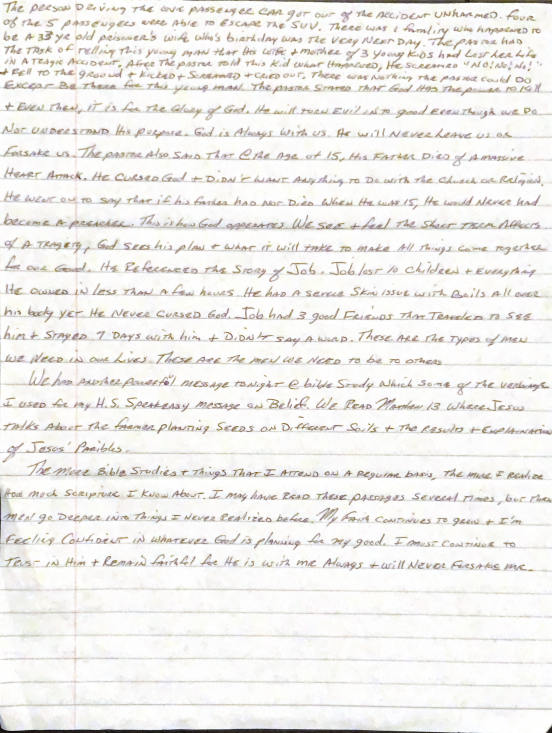 The person driving the one passenger car got out of the accident unharmed. Four
of the 5 passengers were able to escape the SUV. There was 1 fatality who happened to
be a 33 yr old prisoner's wife who's birthday was the very next day. The pastor had
the task of telling this young man that his wife & mother of 3 young kids had lost her life
in a tragic accident. After the pastor told this kid what happened, he screamed "No! No! No!"
& fell to the ground & kicked & screamed & cried out. There was nothing the pastor could do
except be there for this young man. The pastor stated that God has the power to kill
& even then, it is for the Glory of God. He will turn evil into good even though we do
not understand his purpose. God is always with us. He will never leave us or
forsake us. The pastor also said that @ the age of 15, his father died of a massive
heart attack. He cursed God & didn't want anything to do with the church or religion.
He went on to say that if his father had not died when he was 15, he would never had
become a preacher. This is how God opperates. We see & feel the short term affects
of a tragety, God sees his plan & what it will take to make all things come together
for our good. He referenced the story of Job. Job lost 10 children & everything
he owned in less than a few hours. He had a severe skin issue with boils all over
his body yet he never cursed God. Job had 3 good friends that traveled to see
him & stayed 7 days with him & didn't say a word. These are the types of men
we need in our lives. These are the men we need to be to others
We had another powerful message tonight @ bible study which some of the verbiage
I used for my H.S. Speakeasy message on Belief. We read Matthew 13 where Jesus
talks about the farmer planting seeds on different soils & the results & explanation
of Jesus' Paribles.
The more Bible studies & things that I attend on a regular basis, the more I realize
how much scripture I know about. I may have read these passages several times, but these
men go deeper into things I never realized before. My faith continues to grow & I'm
feeling confident in whatever God is planning for my good. I must continue to
trust in Him & remain faithful for He is with me always & will never forsake me.